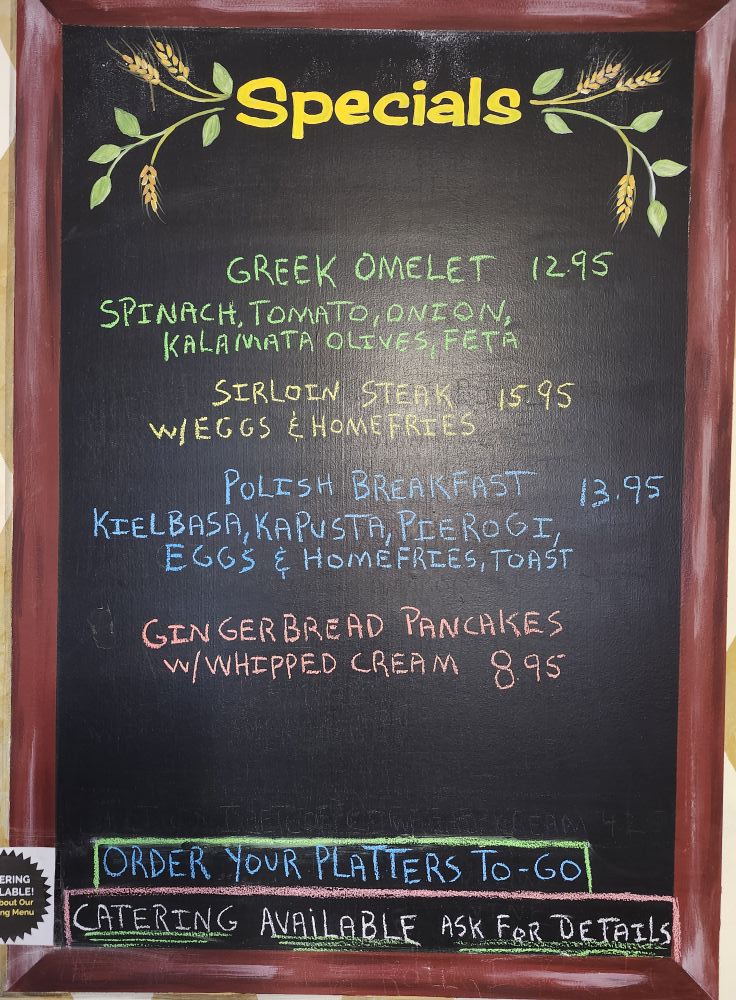 Specials
GREEK OMELET 12.95
SPINACH, TOMATO, ONION,
KALAMATA OLIVES, FETA
SIRLOIN STEAK 15.95
W/EGGS & HOMEFRIES
POLISH BREAKFAST 13.95
KIELBASA, KAPUSTA, PIEROGI,
EGGS & HOMEFRIES, TOAST
GINGERBREAD PANCAKES
W/WHIPPED CREAM 8.95
ORDER YOUR PLATTERS TO-GO
CATERING AVAILABLE ASK FOR DETAILS
ERING
LABLE!
bout Our
ng Menu